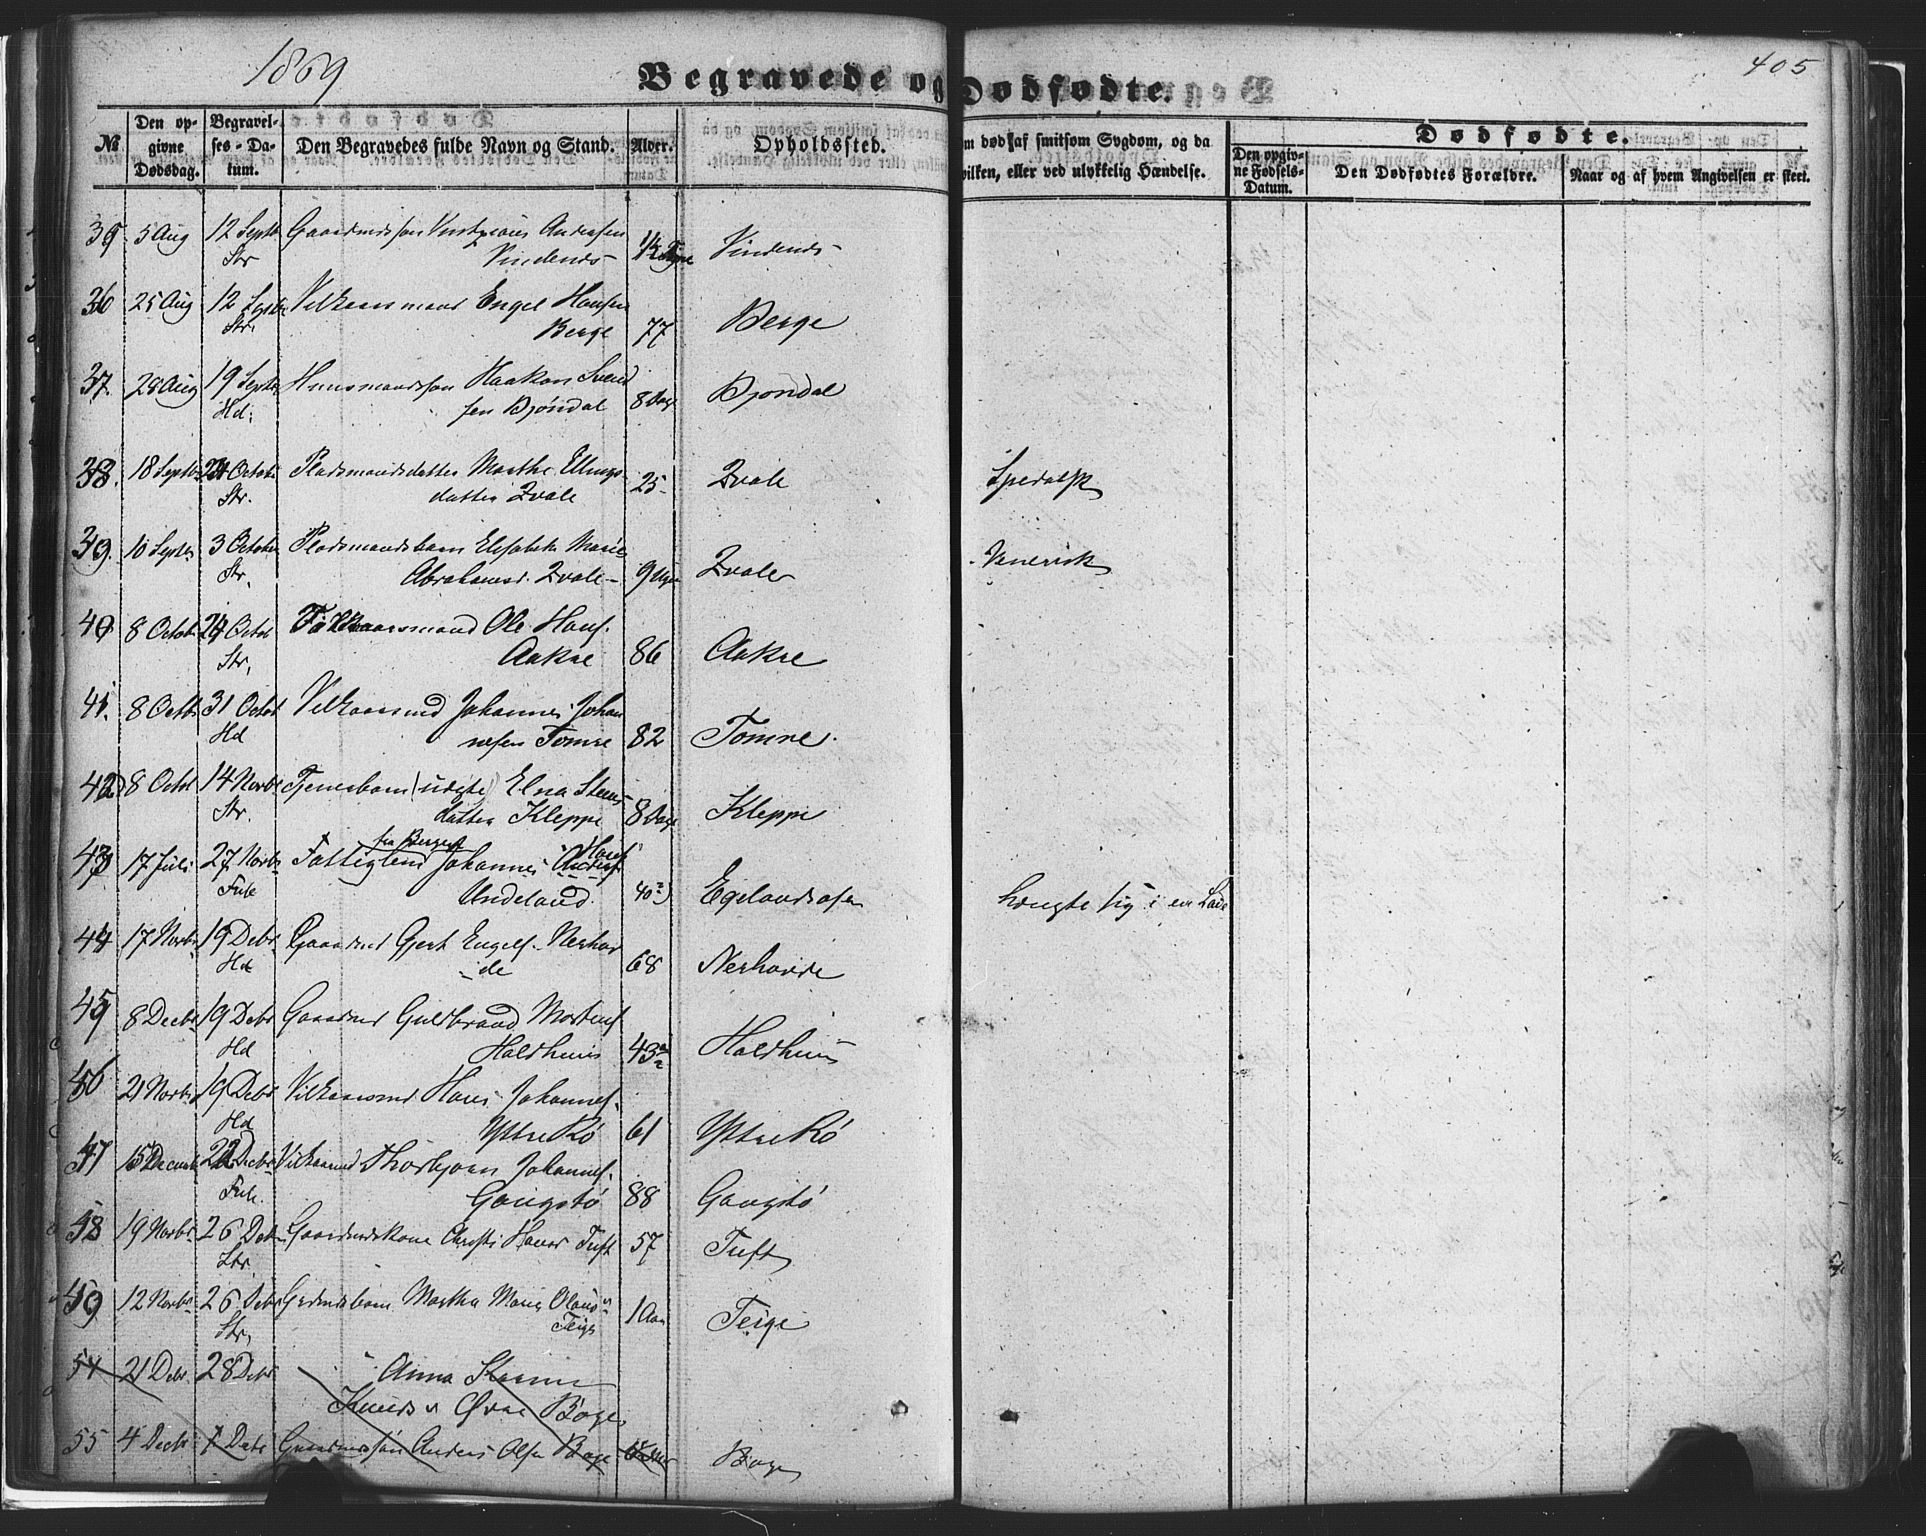 1869
405
Begravede og Dødfødte.
№
Den op-
givne
Dødsdag.
Begravel-
ses-Da-
tum.
Den Begravedes fulde Navn og Stand.
Alder.
Opholdssted.
m død af smitsom Sygdom, og da
vilken, eller ved ulykkelig Hændelse.
Dødfødte.
Den opgiv-
ne Fødsels-
Datum.
Den Dødfødtes Forældre.
Naar og af hvem Angivelsen er skeet.
35 5 Aug 12 Septr Gaardmdssøn Andersen
Str Vindenes 1/2 Vindenes
36 25 Aug 12 Septbr Vilkaarsmand Engel Hansen
Str. Berge 77 Berge
37. 28 Aug 19 Septbr Huusmandssøn Haakon Svend
Hd. sen Bjøndal 8 Dage Bjøndal
38. 18 Septbr 24 Octob Pladsmandsdatter Marthe Ellings-
Str. datter Zvale 25 Zvale Spedalsk
39. 10 Septbr 3 October Pladsmandsbarn Elisabeth Marie
Str. Abrahamsd. Zvale 9 Uger Zvale Venerisk
40 8 Octob 24 Octob Vilkaarsmand Ole Hans.
Str, Aakre 86 Aakre
41. 8 Octb 31 Octob Vilkaarsmd Johannes Johan
Hd nesen Tomre 82 Tomre.
42 8 Octob 14 Novbr Tjenesbarn (uægte) Elna Steens
Str. datter Kleppe 8 Dage Kleppe
fra Bergen Hans
43 17 Juli 27 Novbr Fattiglem Johannes Anders.
Fuse Undeland. 40?) Egelandsosen hængte sig i en
44 17 Novbr 19 Debr Gaardmd Gjert Engels. Nerhov
Hd de 68 Nerhovde
45 8 Decbr 19 Debr Gaardmd Guldbrand Mortens.
Hd Haldhuus 43 Haldhuus
46 21 Novbr 19 Debr Vilkaarsmd Hans Johannes.
Hd Yttre Rø 61 Yttre Rø
47 15 Decemb 22 Decbr Vilkaarsmd Thorbjørn Johannes.
Fuse. Gangstø 88 Gangstø
48 19 Novbr 26 Debr Gaardmdskone Christi Havor Tuft 57 Tuft
Str.
49 12 Novbr 26 Debr Grdmdsbarn Martha Marie Olaus
Str, Teige 1 Aar Teige
54 21 Debr 28 Debr Anna
Knuds Øvre Boge
55 4 Decbr 7 Debr Gaardmdssøn Anders Olsen Boge Boge